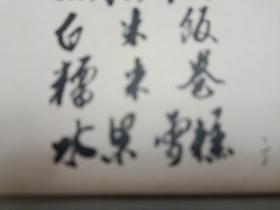 白米飯
糯米卷
水果雪糕